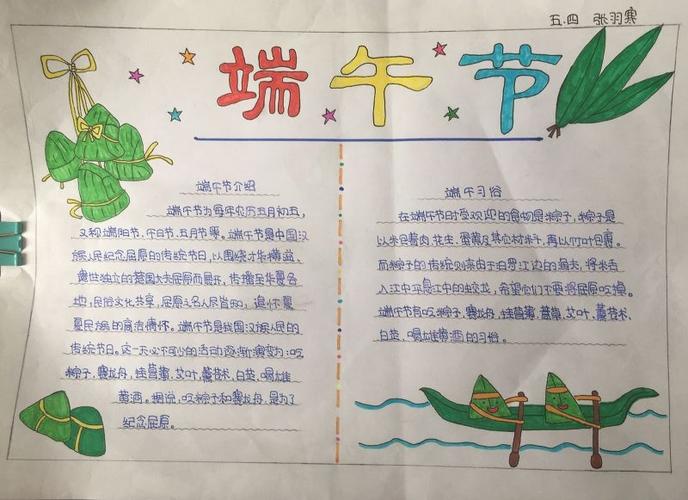 五.四 张羽寒
端午节
端午节介绍
端午节为每年农历五月初五,
又称端阳节、午日节、五月节等。端午节是中国汉
族人民纪念屈原的传统节日,以围绕才华横溢、
遗世独立的楚国大夫屈原而展开,传播至华夏各
地,民俗文化共享,屈原之名人尽皆知,追怀夏
夏民族的高洁情怀。端午节是我国汉族人民的
传统节日。这一天必不可少的活动逐渐演变为:吃
粽子,赛龙舟,挂菖蒲,艾叶,薰苍术,白芷,喝雄
黄酒。据说,吃粽子和赛龙舟,是为了
纪念屈原。
端午习俗
在端午节时受欢迎的食物是粽子,粽子是
以米包着肉、花生、蛋黄及其它材料,再以竹叶包裹。
而粽子的传统则来由于汨罗江边的渔夫,将米丢
入江中平息江中的蛟龙,希望他们不要将屈原吃掉。
端午节有吃粽子,赛龙舟,挂菖蒲,艾叶,薰苍术、
白芷、喝雄黄酒的习俗。